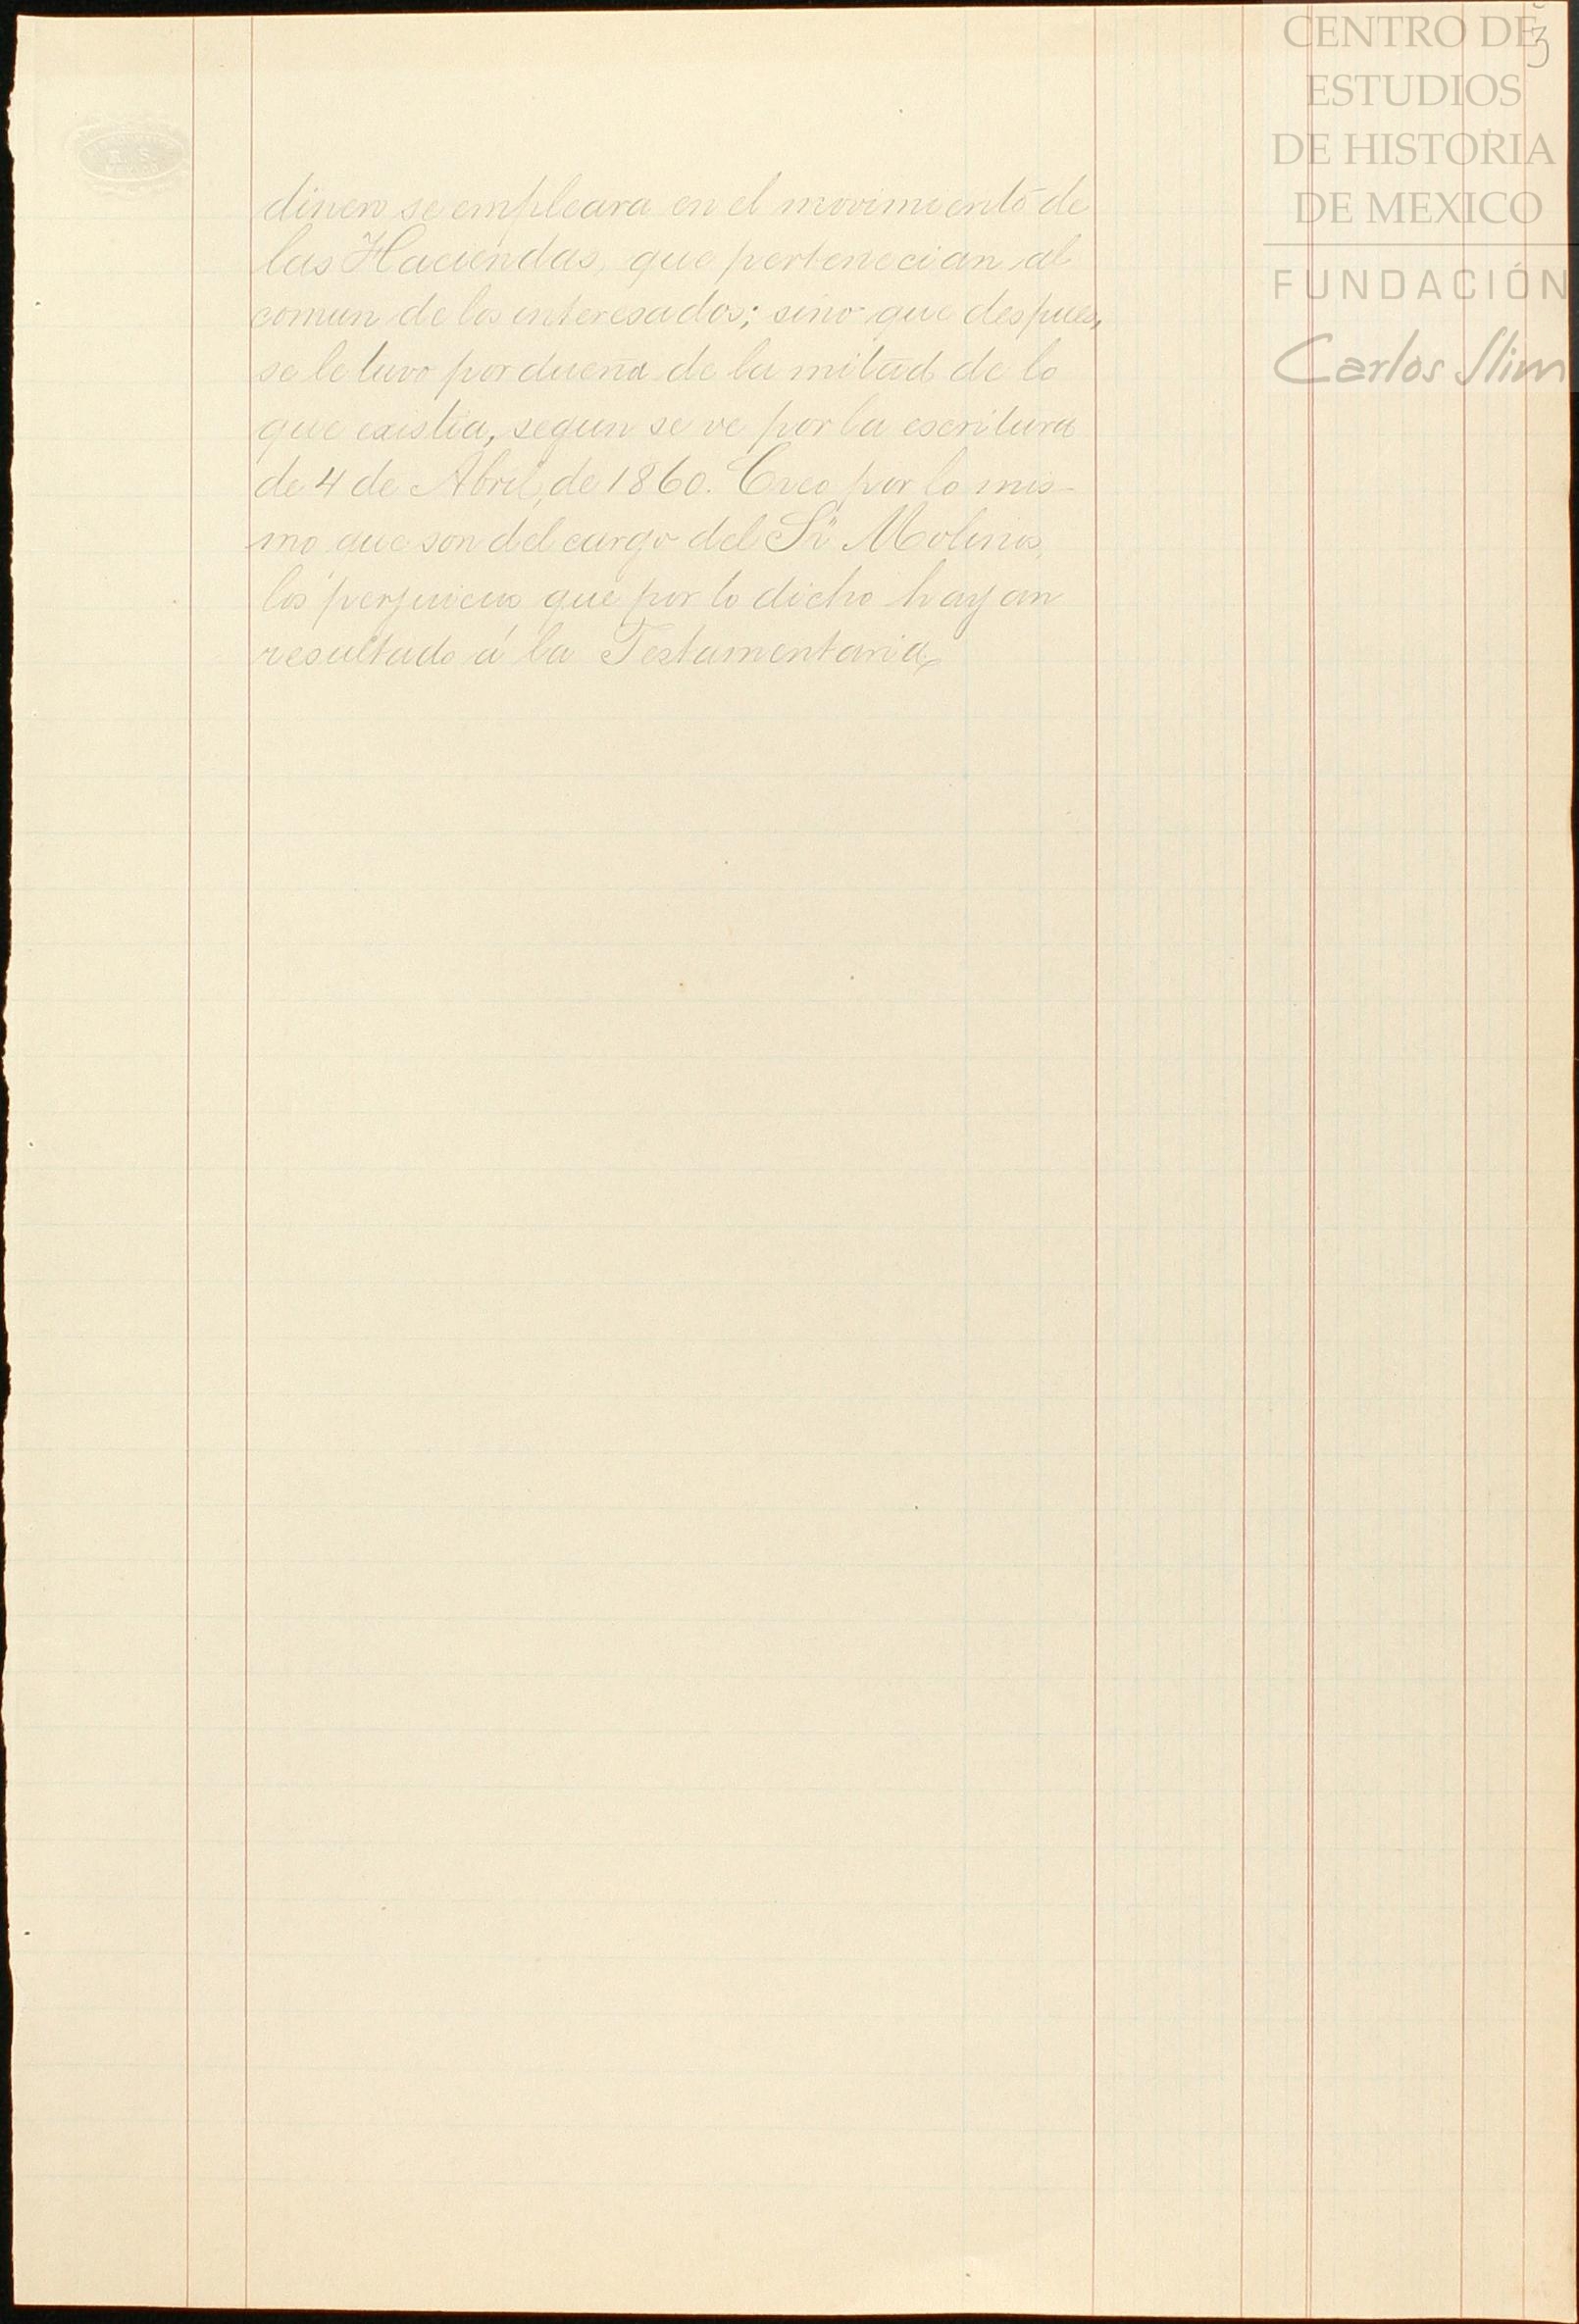 3
CENTRO DE
ESTUDIOS
DE HISTORIA
DE MEXICO
FUNDACIÓN
Carlos Slim
dinero se empleara en el movimiento de
las Haciendas, que pertenecian al
comun de los interesados; sino que despues,
se le tuvo por dueña de la mitad de lo
que existia, segun se ve por la escritura
de 4 de Abril, de 1860. Creo por lo mis-
mo que son del cargo del Sr Molinos,
los perjuicios que por lo dicho hayan
resultado á la Testamentaria